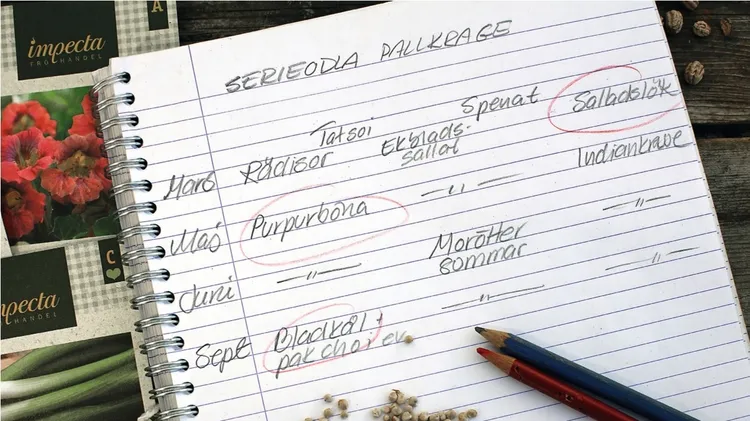 impecta
FRÖHANDEL
A
SERIEODLA PALLKRAGE
Tatsoi Spenat Salladslök
Mars Rädisor Ekblads-
sallat Indiankrasse
Maj Purpurböna — 〃 —
— 〃 —
Juni — 〃 — Morötter
sommar — 〃 —
Sept Bladkål + — 〃 —
pak choi ev.
impecta
HANDEL
C